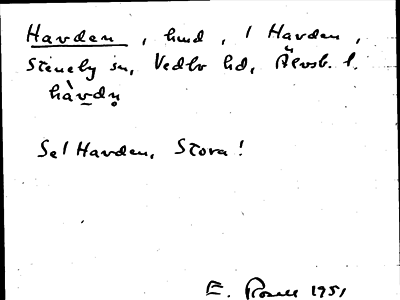 Havden, hmd, 1 Havden,
Steneby sn, Vedbo hd, Älvsb. l.
hàvdṇ
Se! Havden, Stora!
E. Rosell 1951